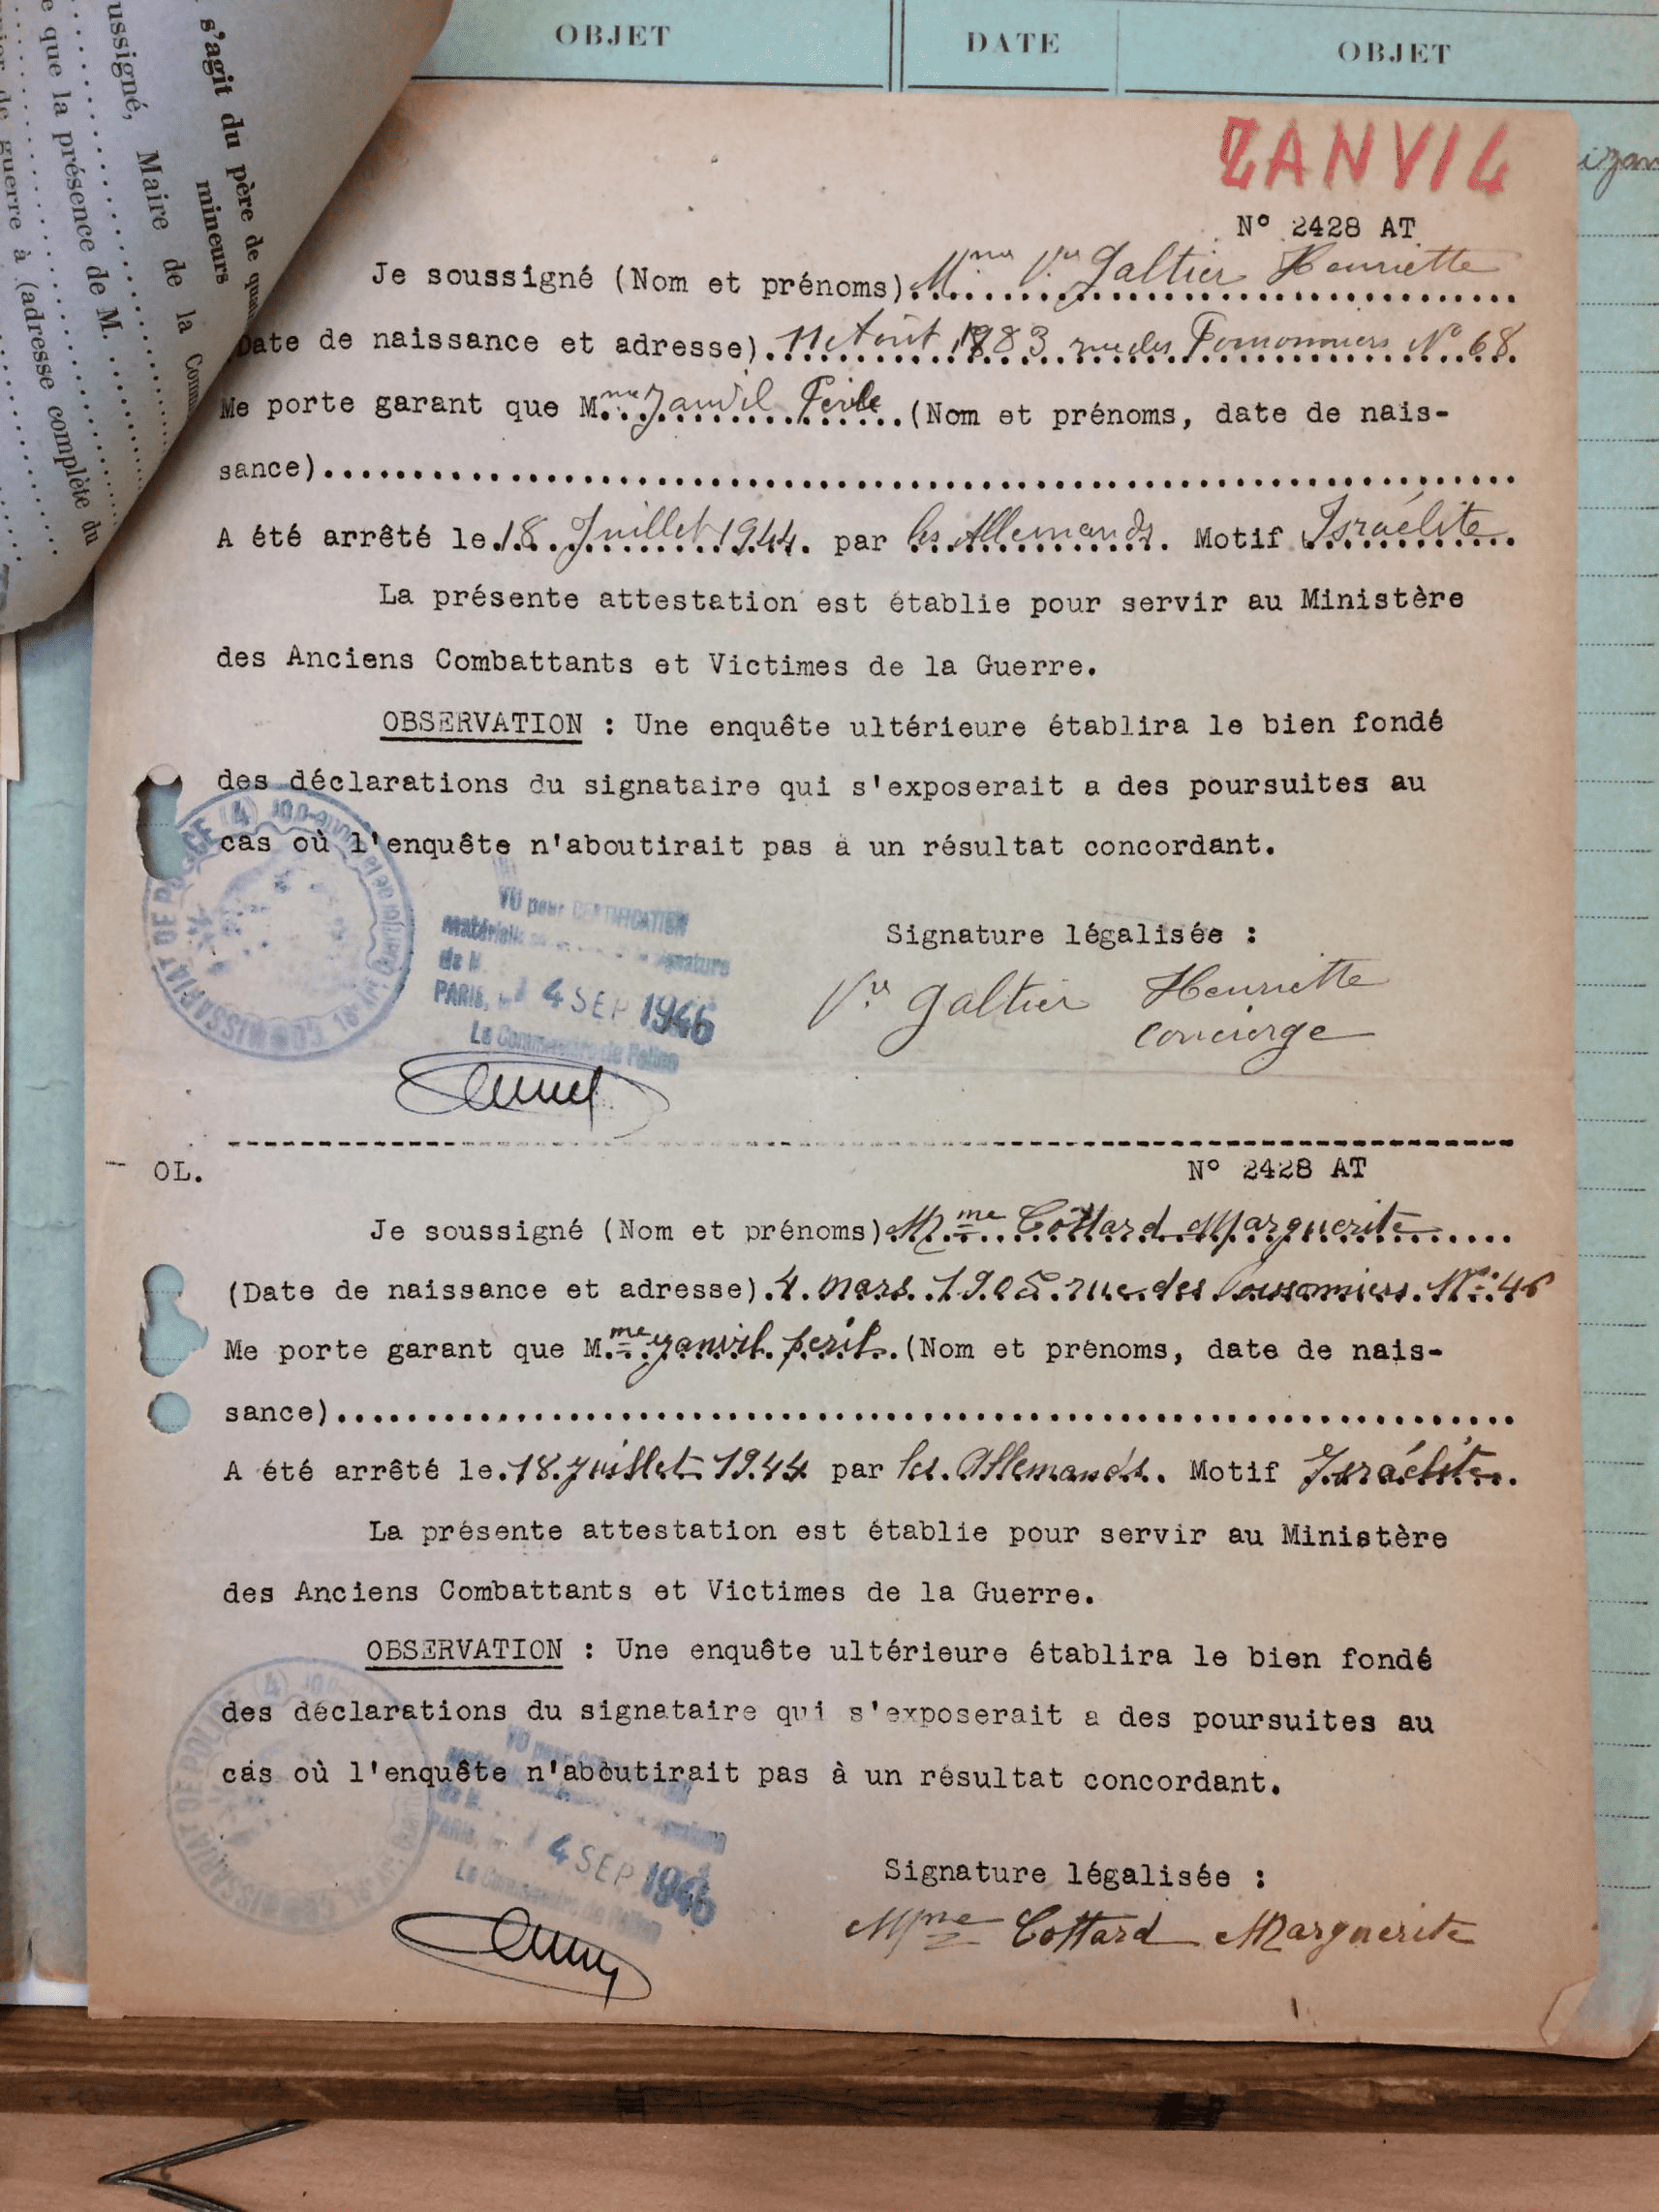 OBJET
DATE
OBJET
s'agit du père de
mineurs
ussigné, Maire de la
e que la présence de M.
guerre à (adresse complète du
ZANVIL
N° 2428 AT
Je soussigné (Nom et prénoms) Mme Vve Galtier Henriette
Date de naissance et adresse) 11 Août 1883 rue des N° 68
Me porte garant que Mme Zanvil (Nom et prénoms, date de nais-
sance)
A été arrêté le 18 Juillet 1944 par les Allemands. Motif Israélite
La présente attestation est établie pour servir au Ministère
des Anciens Combattants et Victimes de la Guerre.
OBSERVATION : Une enquête ultérieure établira le bien fondé
des déclarations du signataire qui s'exposerait a des poursuites au
cas où l'enquête n'aboutirait pas à un résultat concordant.
COMMISSARIAT DE POLICE (4)
VU pour CERTIFICATION
matérielle signature
de M
PARIS, 4 SEP 1946
Le Commissaire de Police
Signature légalisée :
Vve Galtier Henriette
concierge
OL.
N° 2428 AT
Je soussigné (Nom et prénoms) Mme Cottard Marguerite
(Date de naissance et adresse) 4 mars 1905 rue des Poissonniers N° 46
Me porte garant que Mme Zanvil peril (Nom et prénoms, date de nais-
sance)
A été arrêté le 18 juillet 1944 par les Allemands. Motif Israélite.
La présente attestation est établie pour servir au Ministère
des Anciens Combattants et Victimes de la Guerre.
OBSERVATION : Une enquête ultérieure établira le bien fondé
des déclarations du signataire qui s'exposerait a des poursuites au
cas où l'enquête n'aboutirait pas à un résultat concordant.
COMMISSARIAT DE POLICE (4)
VU pour
de M
PARIS, 4 SEP 1946
Le Commissaire de Police
Signature légalisée :
Mme Cottard Marguerite